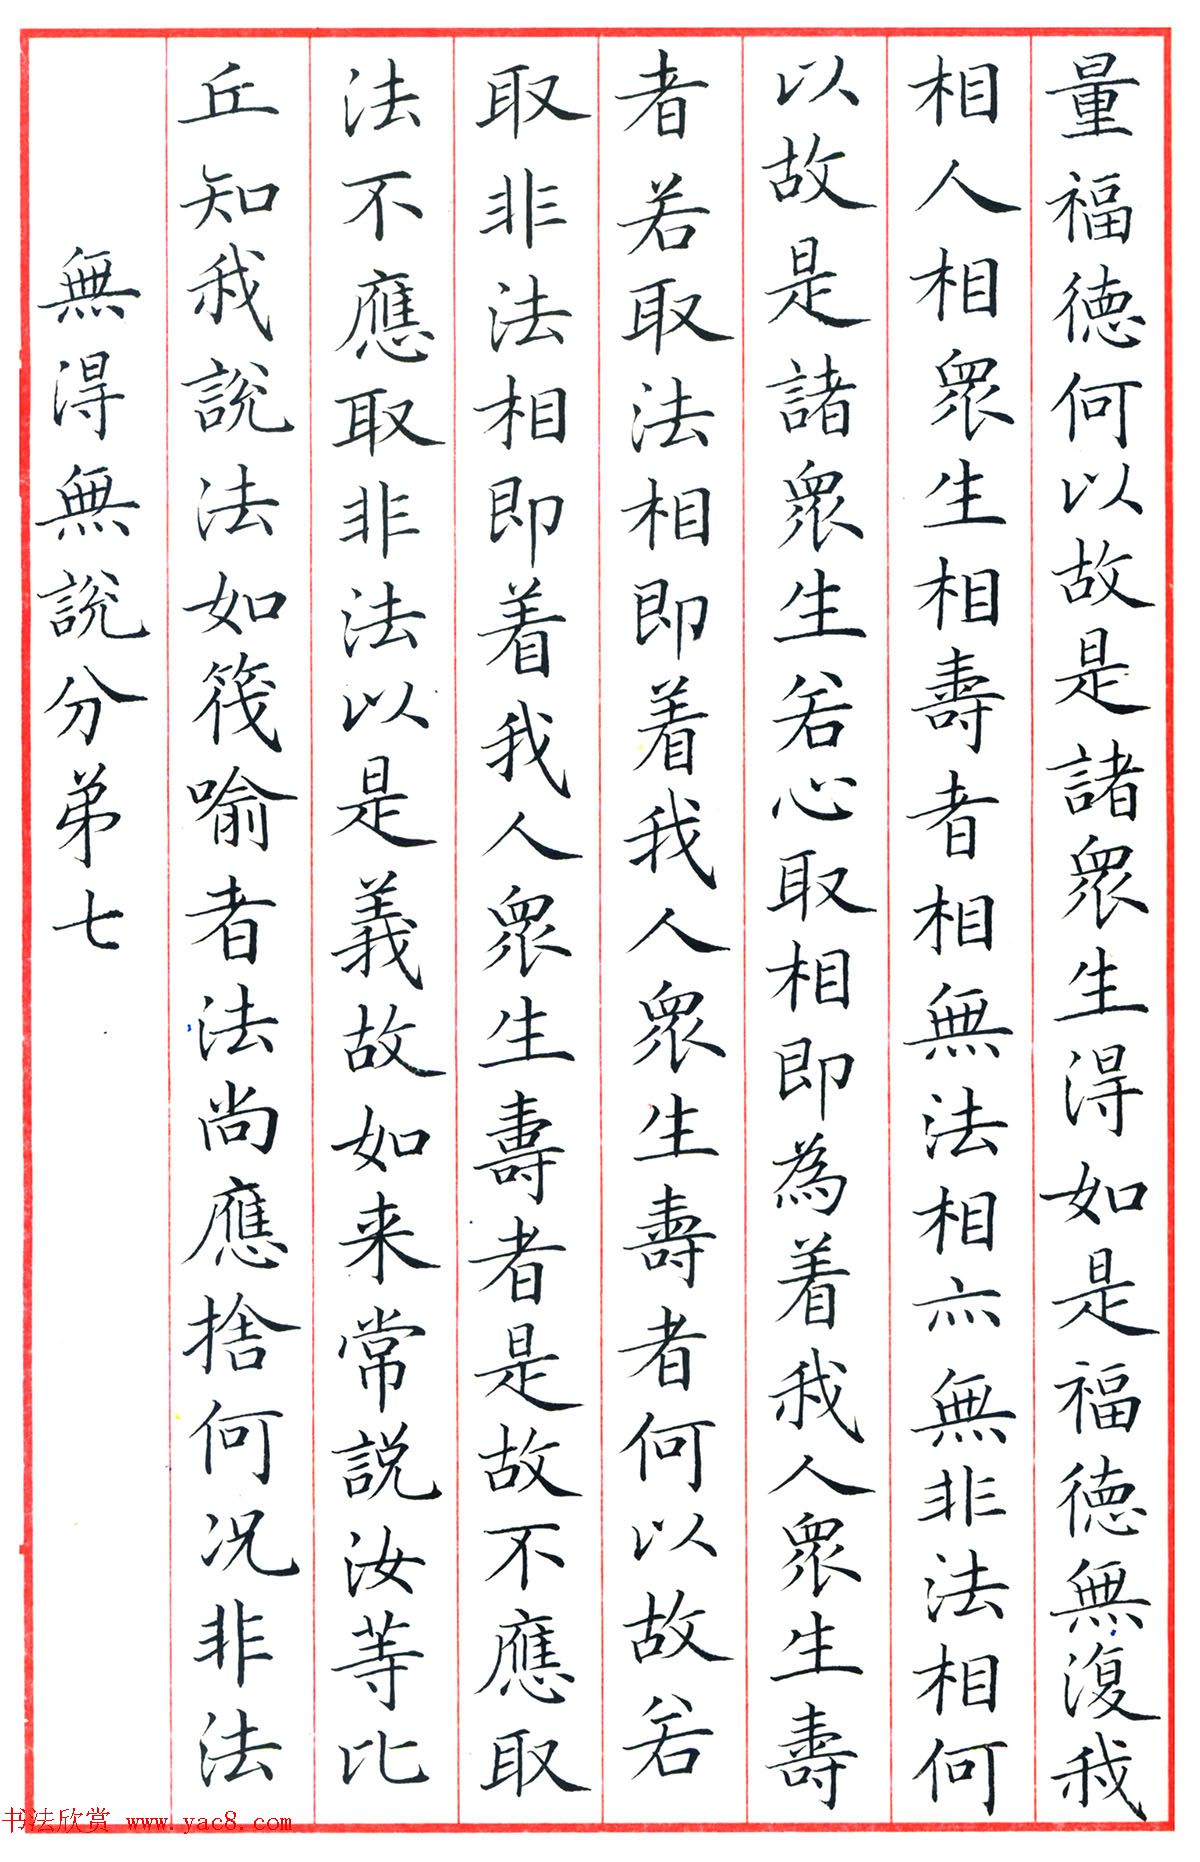 量福德何以故是諸眾生得如是福德無復我
相人相眾生相壽者相無法相亦無非法相何
以故是諸眾生若心取相即為着我人眾生壽
者若取法相即着我人眾生壽者何以故若
取非法相即着我人眾生壽者是故不應取
法不應取非法以是義故如来常説汝等比
丘知我說法如筏喻者法尚應捨何况非法
無得無說分弟七
书法欣赏 www.yac8.com